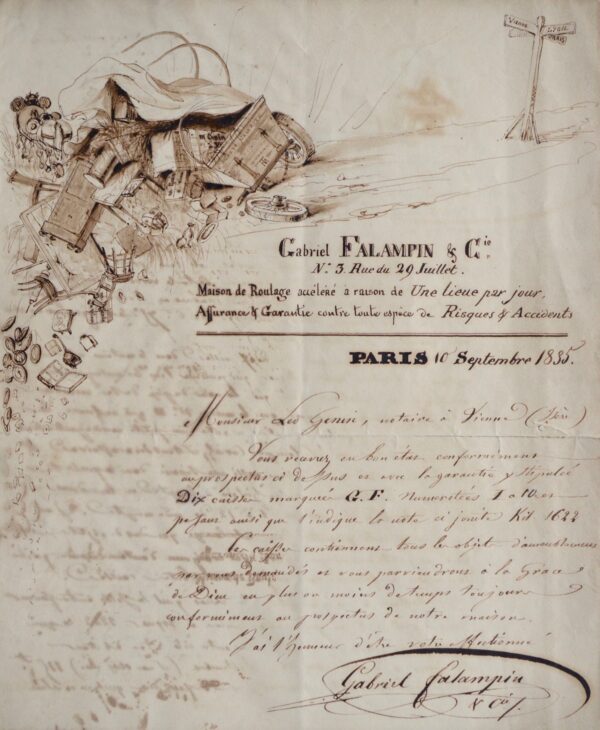 Vienne
LYON
PARIS
Gabriel FALAMPIN & Cie
No. 3 Rue du 29 Juillet.
Maison de Roulage accéléré à raison de Une lieue par jour,
Assurance & Garantie contre toute espèce de Risques & Accidents
PARIS 10 Septembre 1835.
Monsieur Léo Genin, notaire à Vienne (Isère)
Vous recevrez en bon état conformément
au prospectus ci dessus et avec la garantie y stipulée
Dix caisses marquées G. F. Numérotées 1 a 10 et
pesant ainsi que l'indique la note ci jointe Kil 1622
Ces caisses contiennent tous les objets d'ameublement
par vous demandés et vous parviendront à la Grace
de Dieu en plus ou moins de temps toujours
conformément au prospectus de notre maison.
J'ai l'honneur d'être votre affectionné
Gabriel falampin
& Cie